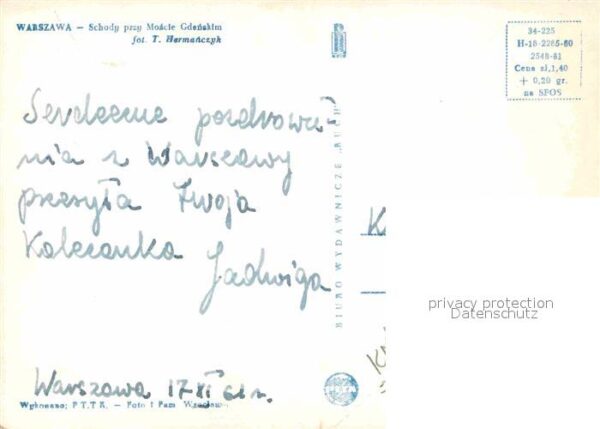 WARSZAWA — Schody przy Moście Gdeńskim
fot. T. Hermańczyk
34-225
H-18-2285-80
2548-61
Cena zł,1,40
+ 0,20 gr.
na SFOS
Serdeczne pozdrowie
nia z Warszawy
przesyła Twoja
Koleżanka Jadwiga
BIURO WYDAWNICZE „RUCH"
privacy protection
Datenschutz
Warszawa 17 XI 61 r.
Wykonano: P.T.T.K. — Foto i Pam Wrocław